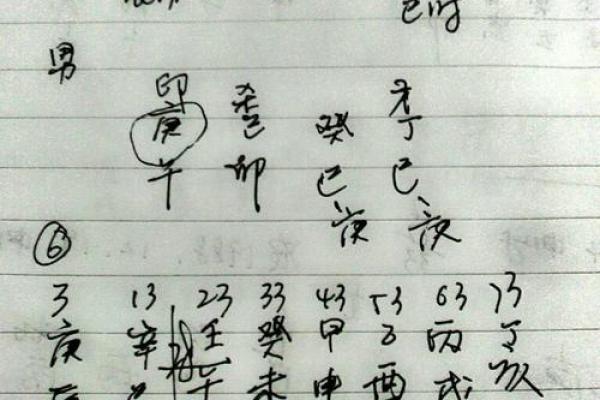 巳时
男
印 杀 才
庚 己 癸 丁
午 卯 巳 巳
庚 庚
⑥
3 13 23 33 43 53 63 73
庚 辛 壬 癸 甲 乙 丙 丁
午 未 申 酉 戌 亥